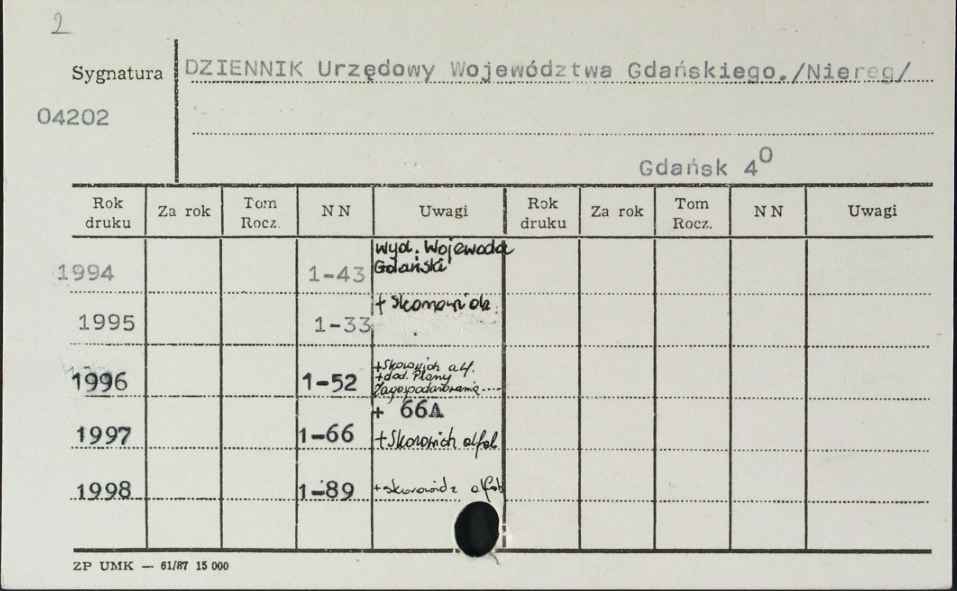 2
Sygnatura
DZIENNIK Urzędowy Województwa Gdańskiego./Niereg/
04202
Gdańsk 4⁰
Rok druku Za rok Tom Rocz. NN Uwagi Rok druku Za rok Tom Rocz. NN Uwagi
1994 1-43 Wyd. Wojewoda Gdański
1995 1-33 + Skorowidz
1996 1-52 +Skorowidz alf. +dod. Plany Zagospodarowania
+ 66A
1997 1-66 +Skorowidz alfab
1998 1-89 +skorowidz alfab
ZP UMK — 61/87 15 000